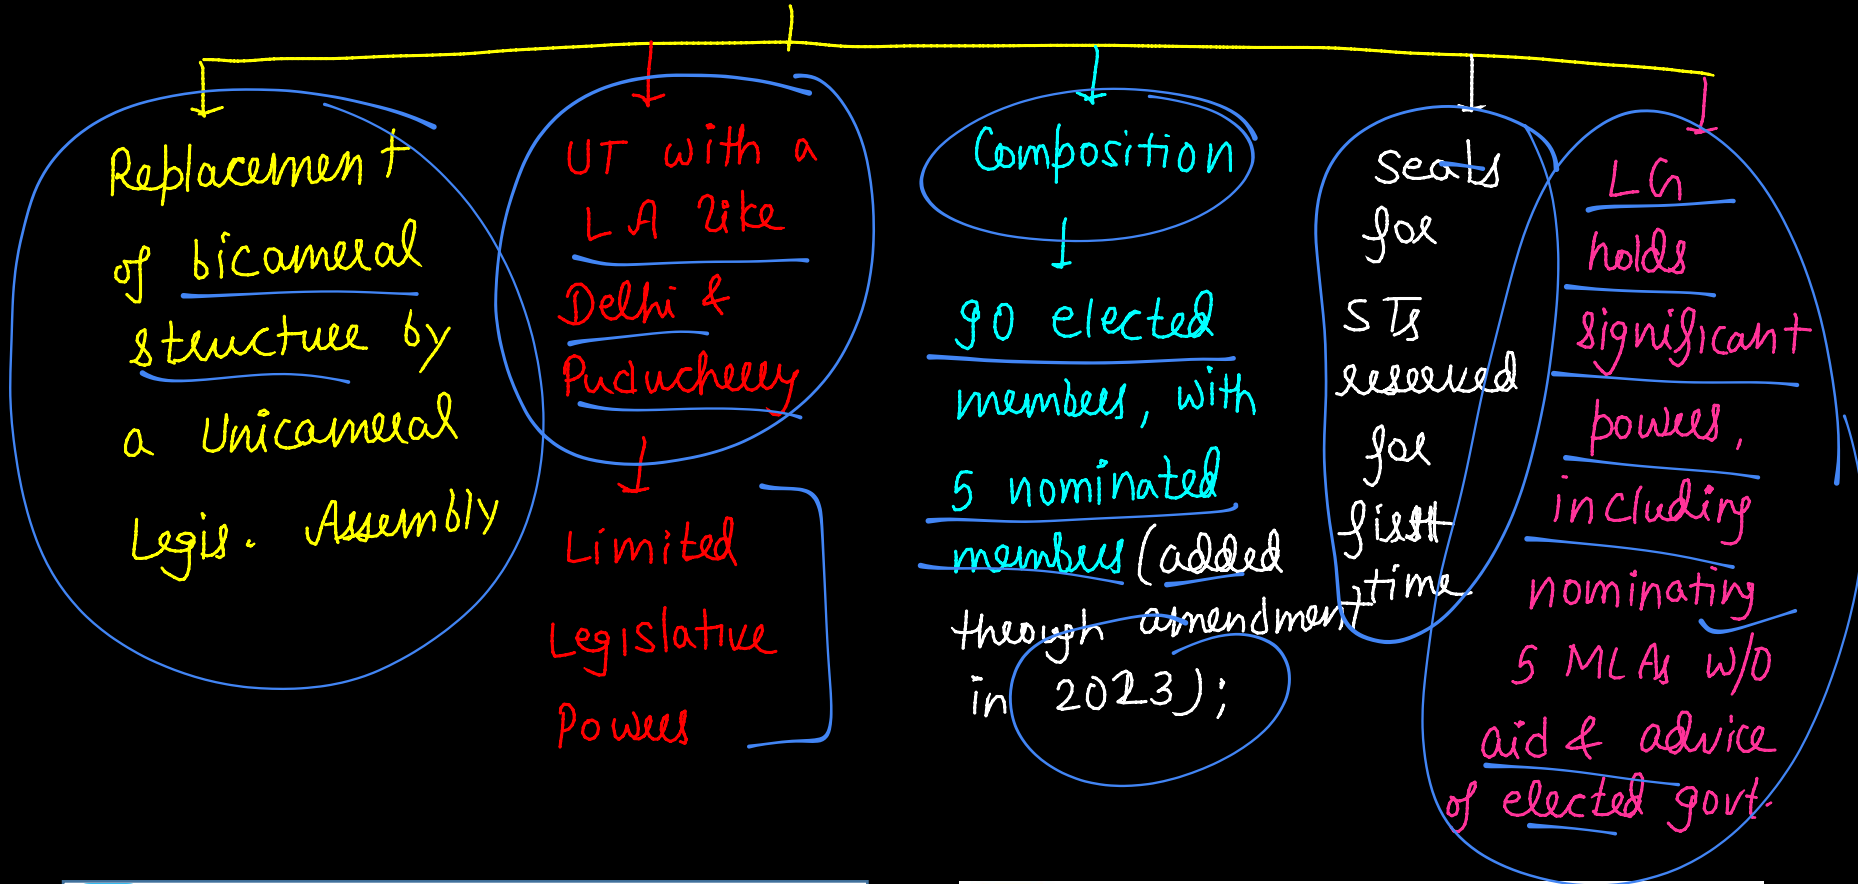 Replacement
of bicameral
structure by
a Unicameral
Legis. Assembly
UT with a
LA like
Delhi &
Puducherry
Limited
Legislative
Powers
Composition
90 elected
members, with
5 nominated
members (added
through amendment
in 2023);
seats
for
STs
reserved
for
first
time
LG
holds
significant
powers,
including
nominating
5 MLAs w/o
aid & advice
of elected govt.